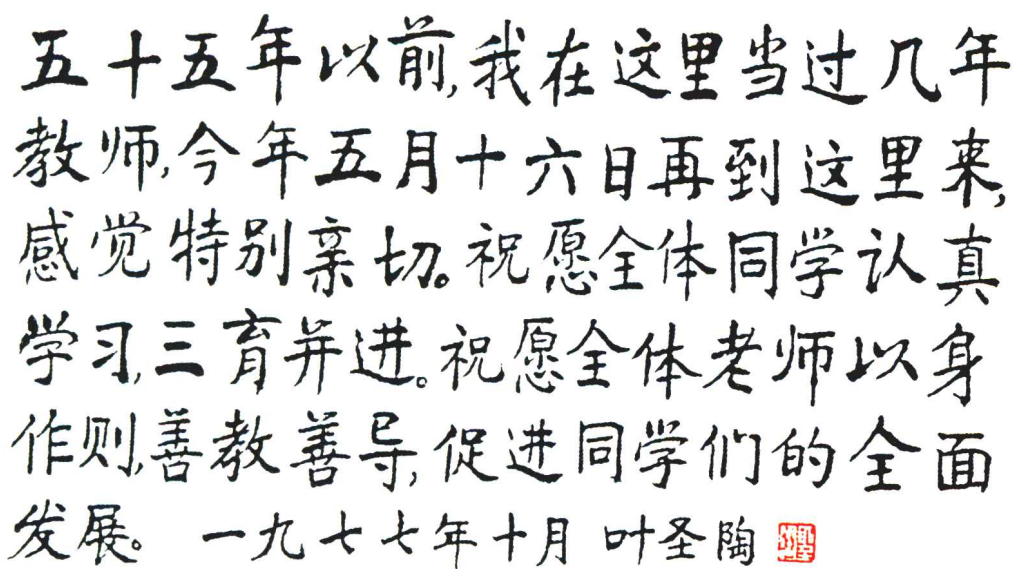 五十五年以前,我在这里当过几年
教师,今年五月十六日再到这里来,
感觉特别亲切。祝愿全体同学认真
学习,三育并进。祝愿全体老师以身
作则,善教善导,促进同学们的全面
发展。 一九七七年十月 叶圣陶